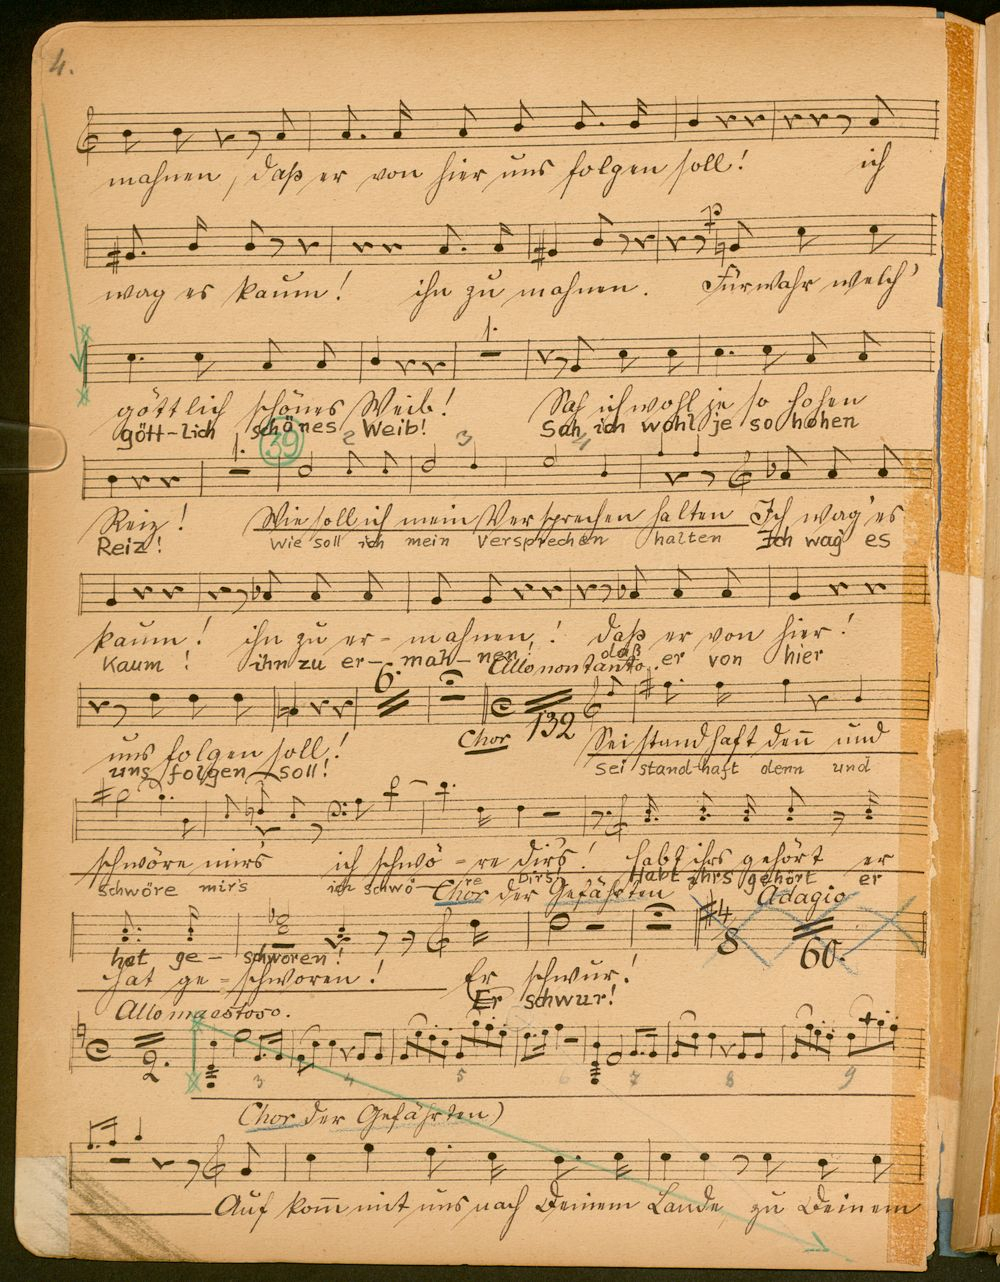 4.
mahnen, daß er von hier uns folgen soll! ich
wag es kaum! ihn zu mahnen. Fürwahr welch'
1.
göttlich schönes Weib! Sah ich wohl je so hohen
gött-lich schönes Weib! Sah ich wohl je so hohen
1. 39 2 3 4
Reiz! Wie soll ich mein Versprechen halten Ich wag' es
Reiz! Wie soll ich mein Versprechen halten Ich wag es
kaum! ihn zu er-mahnen! daß er von hier!
kaum! ihn zu er-mah-nen! daß er von hier
6. Allo non tanto.
Chor 132
uns folgen soll! Sei standhaft den̄ und
uns folgen soll! Sei stand-haft denn und
schwöre mirs ich schwö-re dirs! habt ihrs gehört er
schwöre mir's ich schwö-re Dirs! Habt ihrs gehört er
Chor der Gefährten Adagio
4/8 60.
hat ge-schworen!
hat ge-schworen! Er schwur!
Er schwur!
Allo maestoso.
2. 3 4 5 6 7 8 9
Chor der Gefährten)
Auf kom̄ mit uns nach Deinem Lande zu Deinem